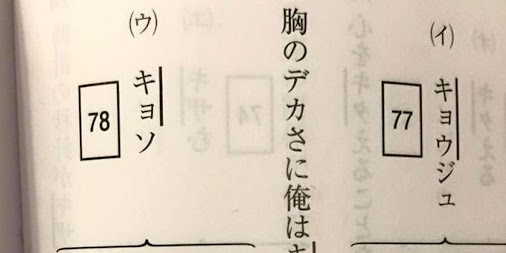 (イ) キョウジュ 77
胸のデカさに俺はキ
(ウ) キョソ 78